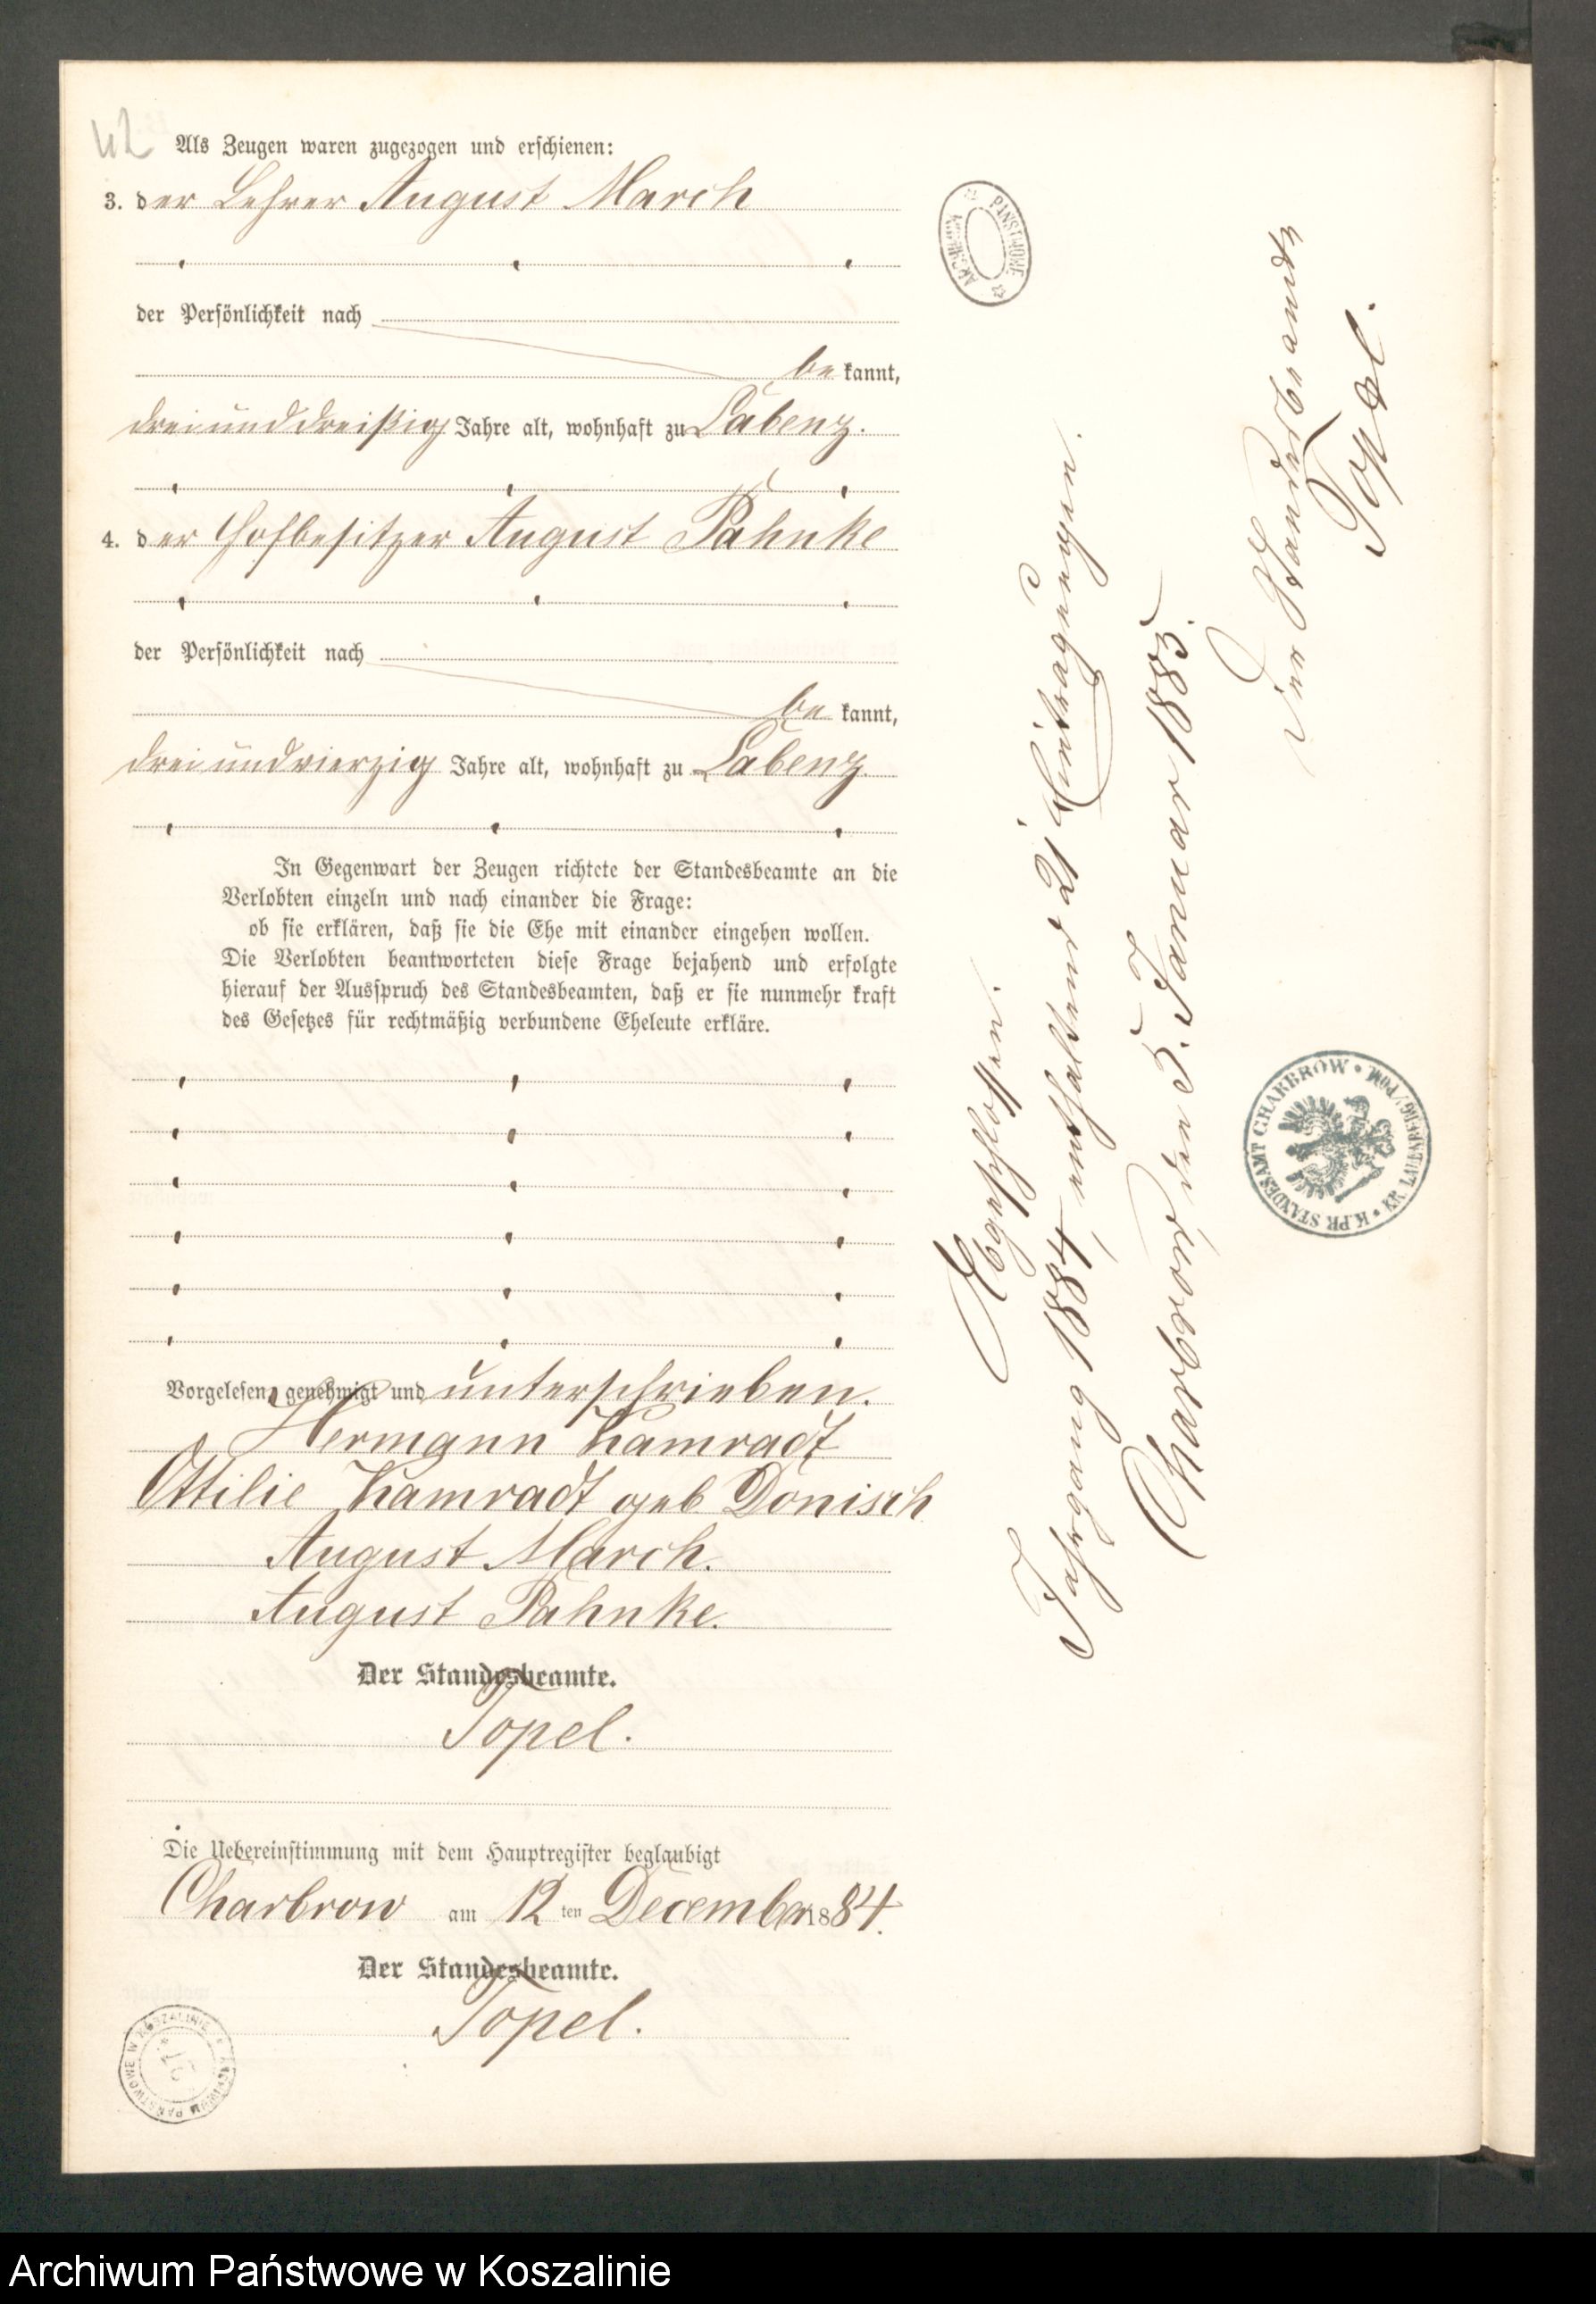 42
Als Zeugen waren zugezogen und erschienen:
3. der Lehrer August March
der Persönlichkeit nach
be kannt,
dreiunddreißig Jahre alt, wohnhaft zu Labenz.
4. der Hofbesitzer August Pahnke
der Persönlichkeit nach
be kannt,
dreiundvierzig Jahre alt, wohnhaft zu Labenz.
In Gegenwart der Zeugen richtete der Standesbeamte an die
Verlobten einzeln und nach einander die Frage:
ob sie erklären, daß sie die Ehe mit einander eingehen wollen.
Die Verlobten beantworteten diese Frage bejahend und erfolgte
hierauf der Ausspruch des Standesbeamten, daß er sie nunmehr kraft
des Gesetzes für rechtmäßig verbundene Eheleute erkläre.
Vorgelesen, genehmigt und unterschrieben.
Hermann Kamradt
Ottilie Kamradt geb Donisch
August March.
August Pahnke.
Der Standesbeamte.
Topel.
Die Uebereinstimmung mit dem Hauptregister beglaubigt
Charbrow am 12 ten December 1884.
Der Standesbeamte.
Topel.
ARCHIWUM PAŃSTWOWE W KOSZALINIE
ARCHIWUM PAŃSTWOWE
Abgeschlossen.
Jahrgang 1884, enthaltend 21 Eintragungen.
Charbrow, den 5. Januar 1885.
Der Standesbeamte
Topel.
K. PR STANDESAMT CHARBROW • KR. LAUENBURG/POM.
Archiwum Państwowe w Koszalinie